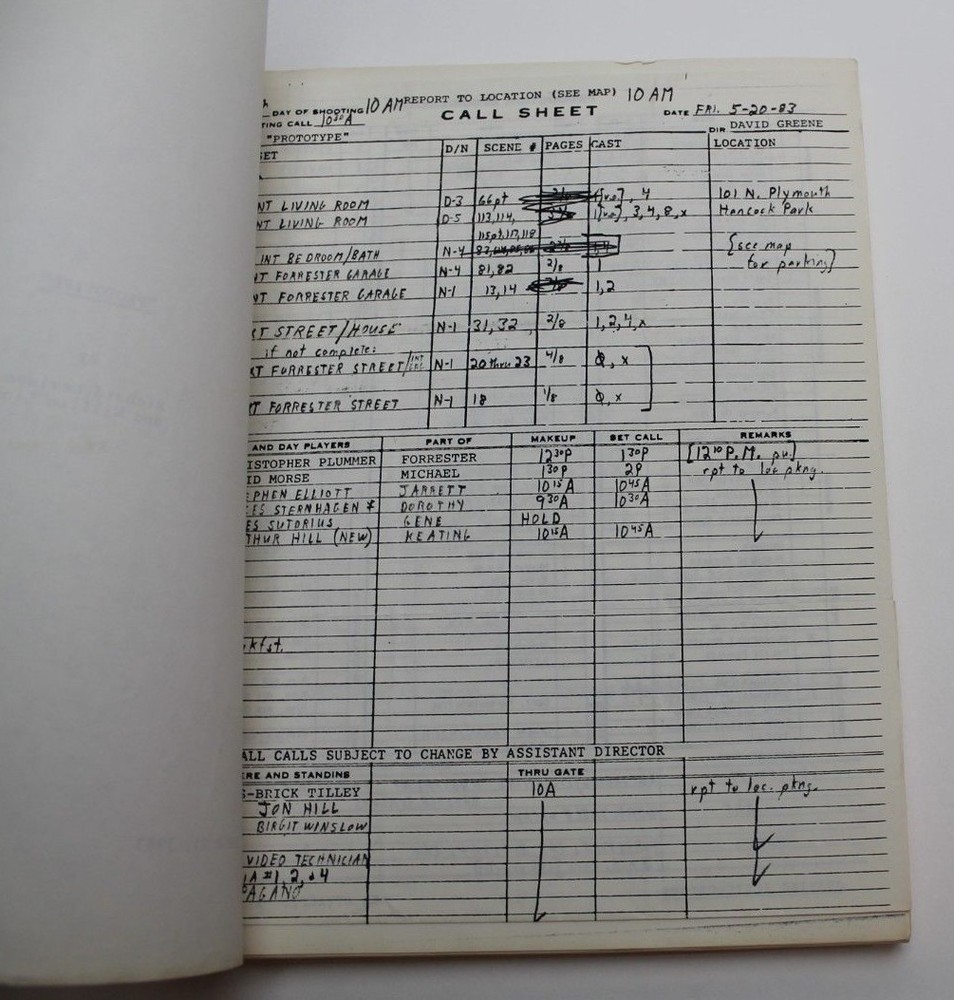 DAY OF SHOOTING 10 AM REPORT TO LOCATION (SEE MAP) 10 AM
TING CALL 10³⁰A CALL SHEET DATE FRI. 5-20-83
"PROTOTYPE" DIR DAVID GREENE
SET D/N SCENE # PAGES CAST LOCATION
NT LIVING ROOM D-3 66pt 4 101 N. Plymouth
NT LIVING ROOM D-5 113,114, 3,4,8,x Hancock Park
115pt,117,118
INT BEDROOM/BATH N-4 [see map
NT FORRESTER GARAGE N-4 81,82 2/8 1 for parking]
NT FORRESTER GARAGE N-1 13,14 1,2
XT STREET/HOUSE N-1 31,32 2/8 1,2,4,x
if not complete:
XT FORRESTER STREET/INT N-1 20 thru 23 4/8 x
T FORRESTER STREET N-1 18 1/8 x
AND DAY PLAYERS PART OF MAKEUP SET CALL REMARKS
ISTOPHER PLUMMER FORRESTER 12³⁰P 1³⁰P [12¹⁰P.M. pu.]
ID MORSE MICHAEL 1³⁰P 2P rpt to loc pkng.
EPHEN ELLIOTT JARRETT 10¹⁵A 10⁴⁵A
ES STERNHAGEN * DOROTHY 9³⁰A 10³⁰A
ES SUTORIUS GENE HOLD
THUR HILL (NEW) KEATING 10¹⁵A 10⁴⁵A
kfst.
ALL CALLS SUBJECT TO CHANGE BY ASSISTANT DIRECTOR
ERE AND STANDINS THRU GATE
S-BRICK TILLEY 10A rpt to loc. pkng.
JON HILL
BIRGIT WINSLOW
VIDEO TECHNICIAN
IA #1, 2, + 4
PAGANO